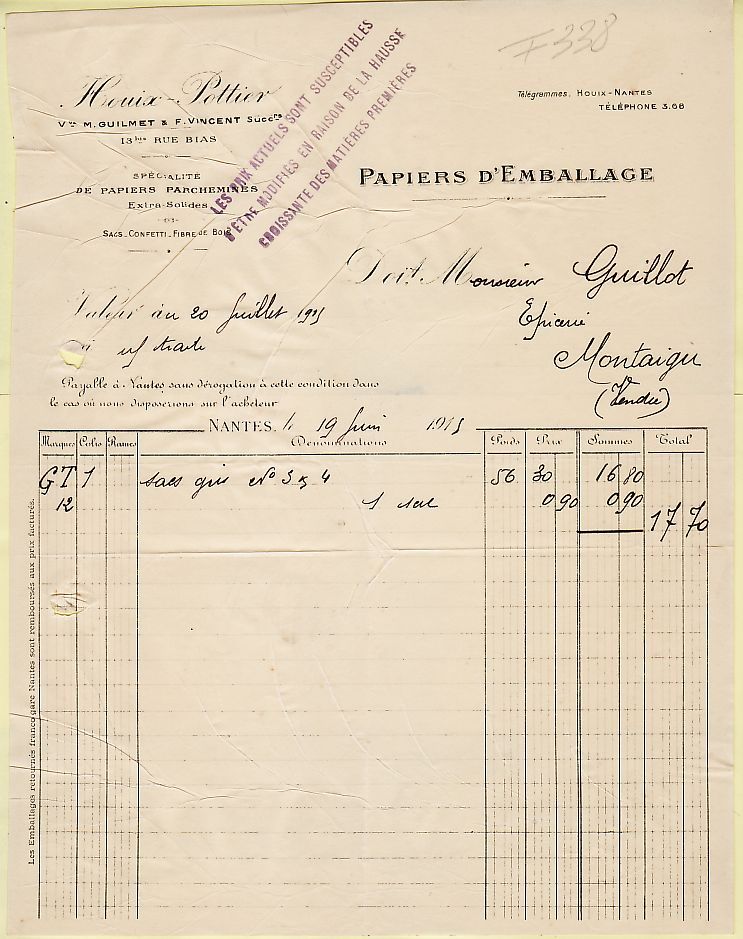 F 338
Houix-Pottier
Vve M. GUILMET & F. VINCENT Succrs
13bis RUE BIAS
SPÉCIALITÉ
DE PAPIERS PARCHEMINÉS
Extra-Solides
SACS_CONFETTI_FIBRE DE BOIS
LES PRIX ACTUELS SONT SUSCEPTIBLES
D'ÊTRE MODIFIÉS EN RAISON DE LA HAUSSE
CROISSANTE DES MATIÈRES PREMIÈRES
Télégrammes, HOUIX-NANTES
TÉLÉPHONE 3.66
PAPIERS D'EMBALLAGE
Doit Monsieur Guillot
Epicerie
Montaigu
(Vendée)
Valeur au 20 Juillet 1915
n/ traite
Payable à Nantes sans dérogation à cette condition dans
le cas où nous disposerions sur l'acheteur
NANTES, le 19 Juin 1915
Marques Colis Rames Dénominations Poids Prix Sommes Total
GT 1 sacs gris No 3 & 4 56 30 16 80
12 1 sac 0 90 0 90
17 70
Les Emballages retournés franco gare Nantes sont remboursés aux prix facturés.